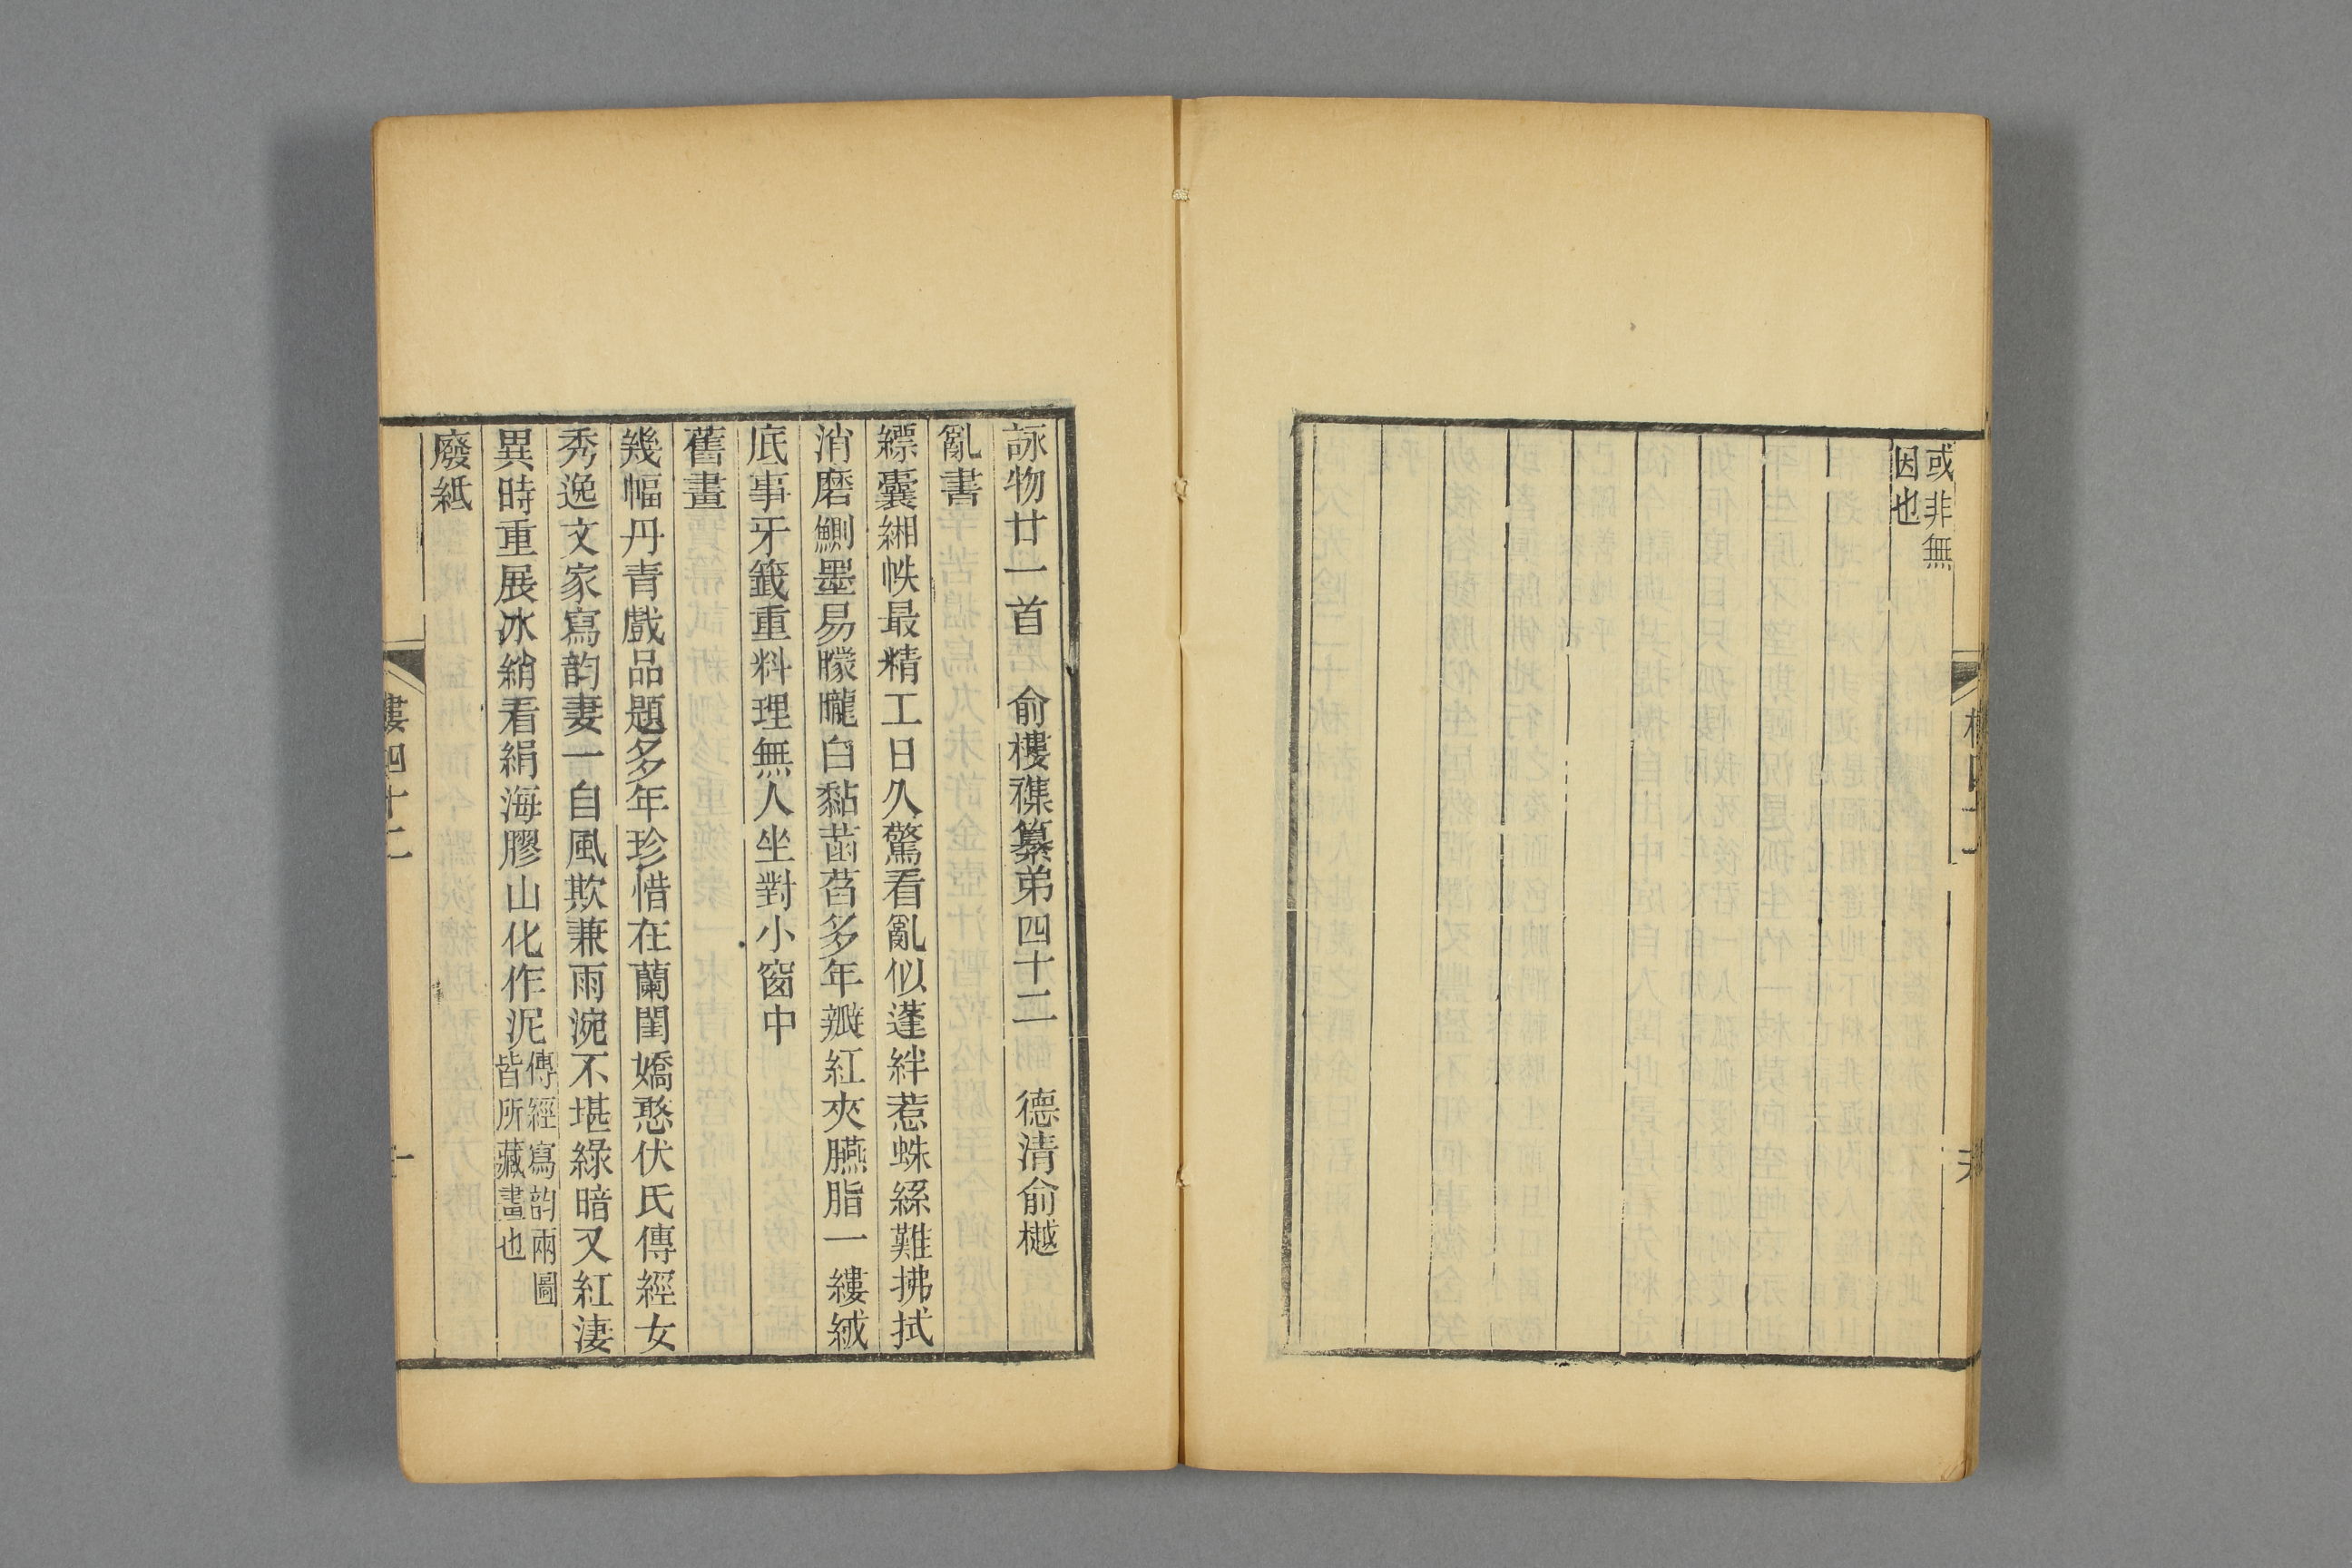 或非無
因也
詠物廿一首 俞樓襍纂弟四十二 德清俞樾
亂書
縹囊緗帙最精工日久驚看亂似蓬絆惹蛛絲難拂拭
消磨鰂墨易朦朧白黏菡萏多年瓣紅夾臙脂一縷絨
底事牙籤重料理無人坐對小窗中
舊畫
幾幅丹青戲品題多年珍惜在蘭閨嬌憨伏氏傳經女
秀逸文家寫韵妻一自風欺兼雨涴不堪綠暗又紅淒
異時重展冰綃看絹海膠山化作泥
傳經寫韵兩圖
皆所藏畫也
廢紙
樓四十二
一